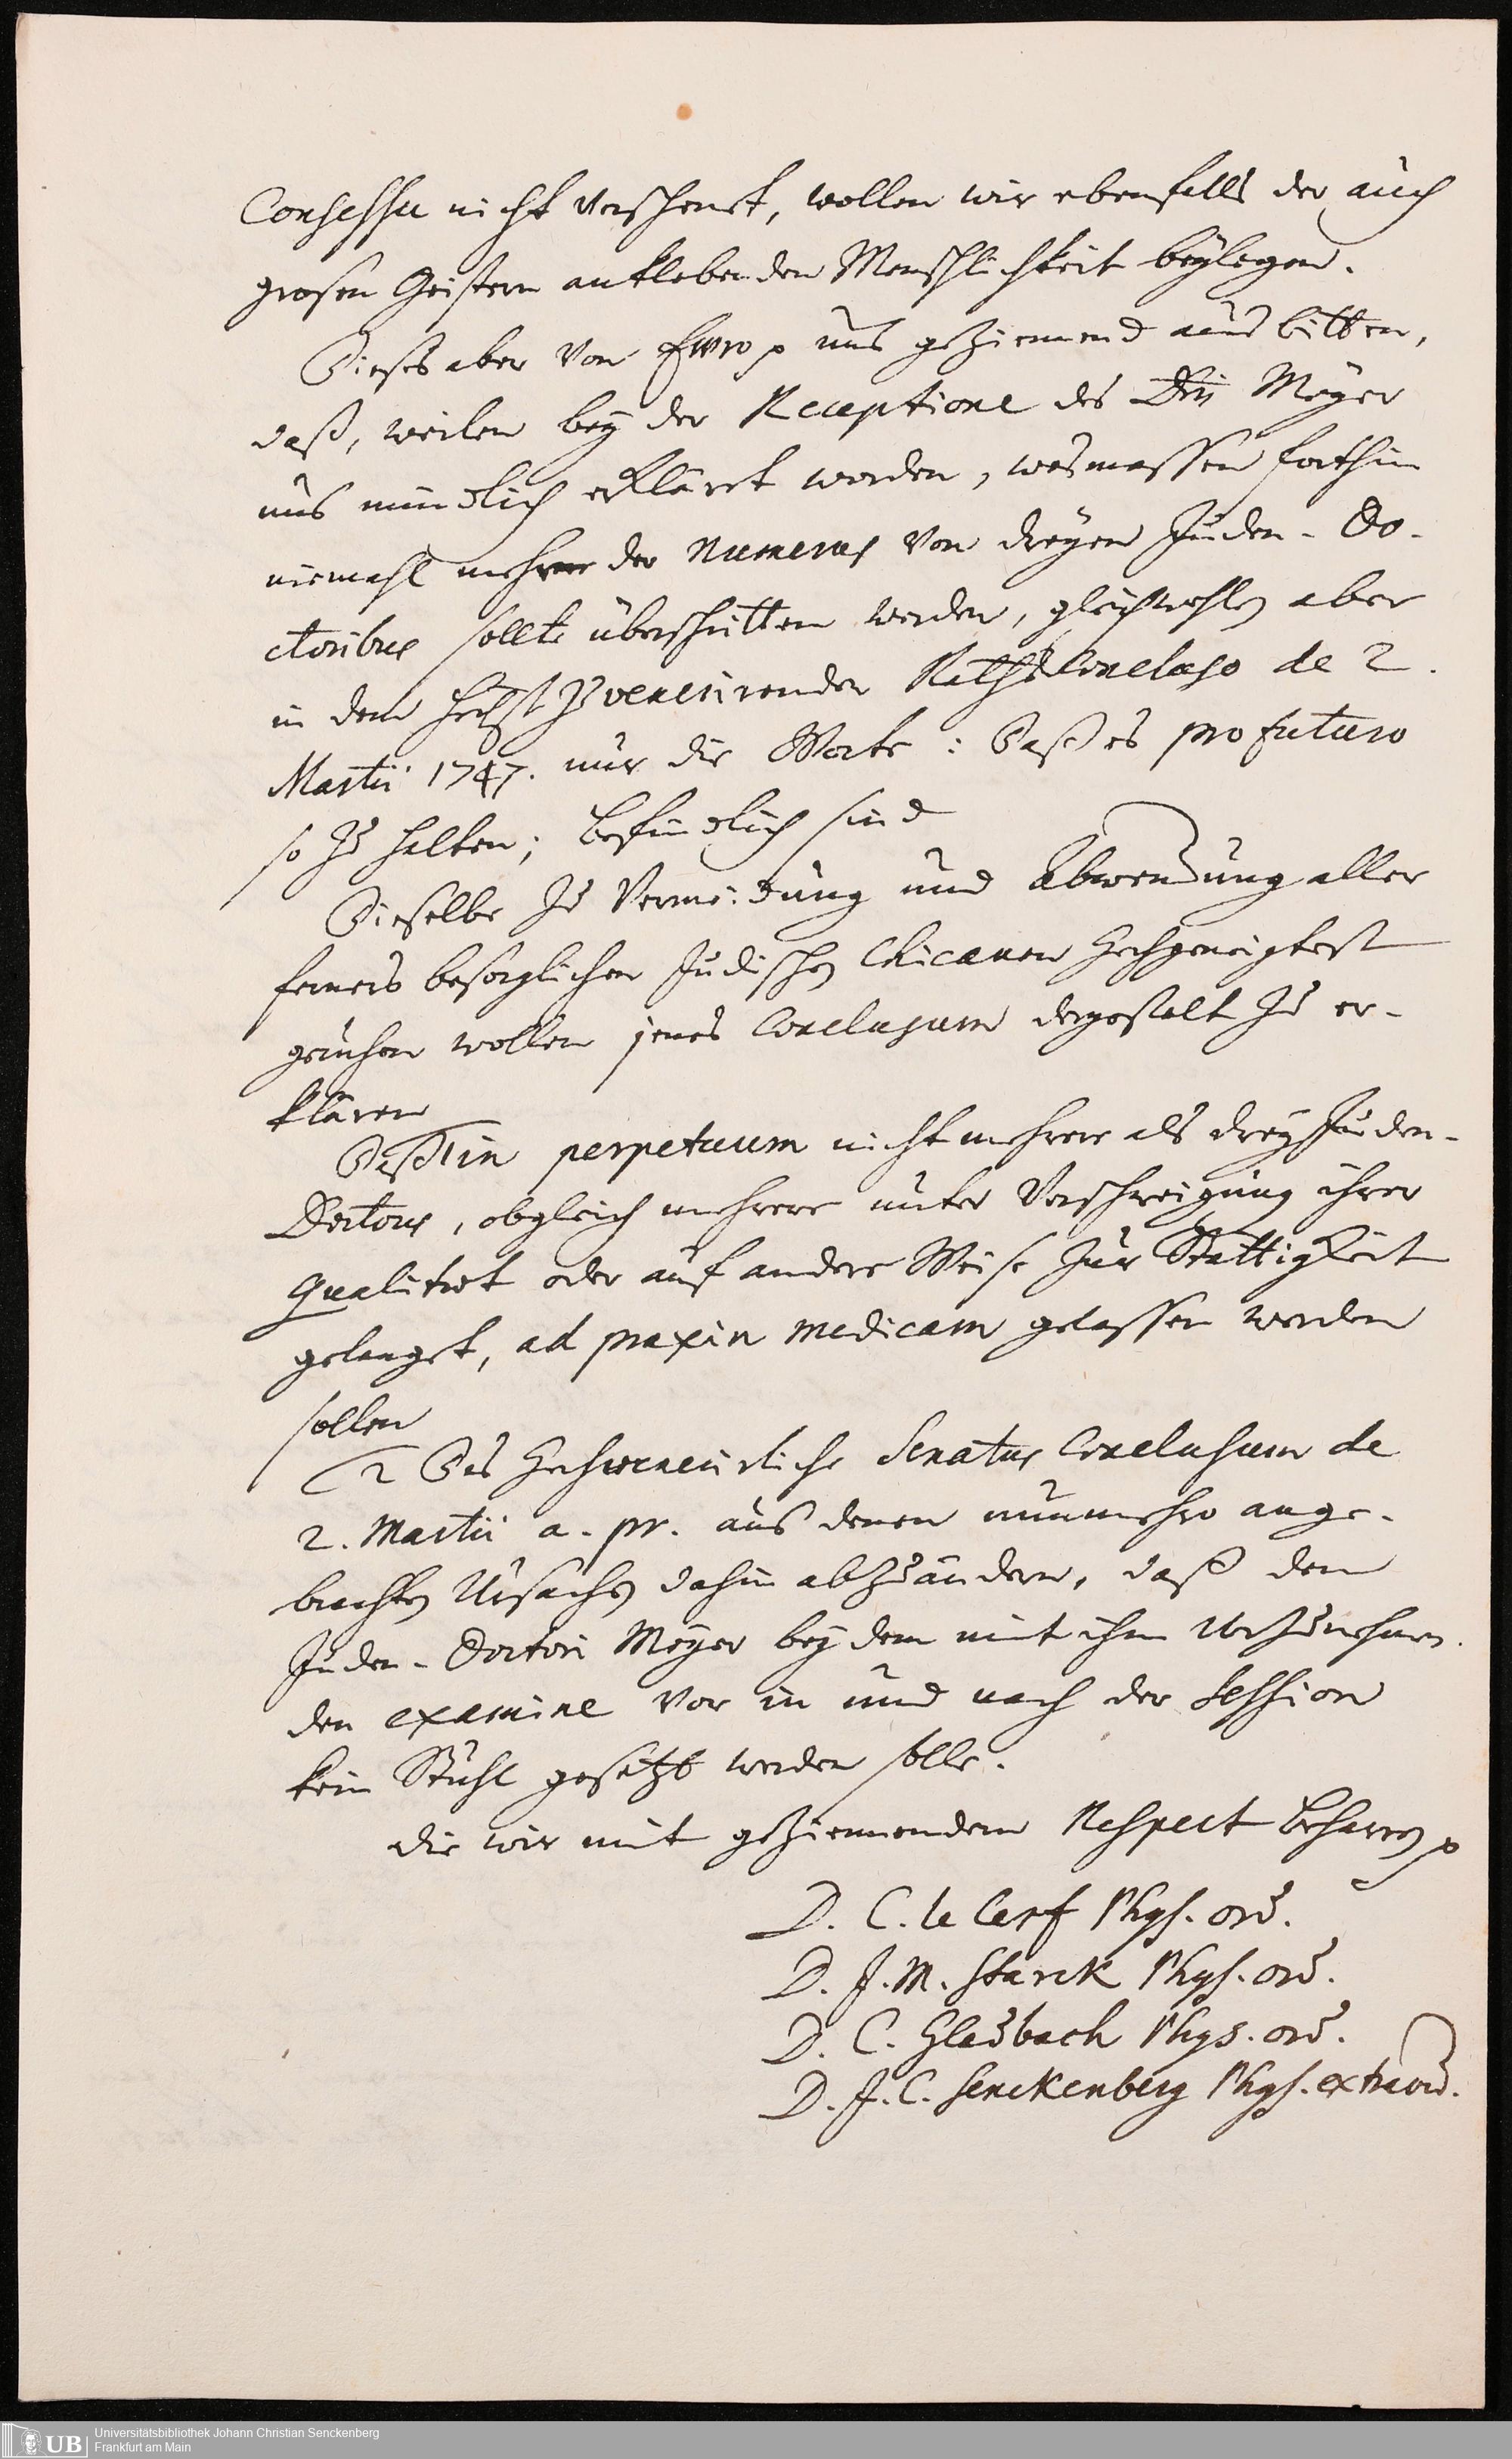 Consessu nicht verschont, wollen wir ebenfalls der auch
grosen Geistern anklebenden Menschlichkeit beylegen.
Dieses aber von Ewro p uns geziemend aus bitten,
daß, weilen bey der Receptione des Dris Meyer
uns mündlich erklärt worden, wasmassen forthin
niemahl mehrere der Numerus von dreyen Juden-Do-
ctoribus sollte überschritten werden, gleichwohlen aber
in dem höchst zu venerirenden Raths Concluso de 2.
Martii 1747. nur die Worte: Daß es pro futuro
so zu halten; befindlich sind
Dieselbe zu Vermeidung und Abwendung aller
ferners besorglichen Judischen Chicanen Hochgeneigtest
geruhen wollen jenes Conclusum dergestalt zu er-
klären
Daß in perpetuum nicht mehrere als drey Juden-
Doctores, obgleich mehrere unter Verschweigung ihrer
Qualitaet oder auf andere Weise zur Stättigkeit
gelanget, ad praxin medicam gelassen werden
sollen
2 Das Hochvenerirliche Senatus Conclusum de
2. Martii a. pr. aus denen nunmehro ange-
brachten Ursachen dahin abzuändern, daß dem
Juden-Doctori Meyer bey dem mit ihm vorzunehmen
den examine vor in und nach der Session
kein Stuhl gesetzt werden solle.
die wir mit geziemendem Respect beharren p
D. C. le Cerf Phys. ord.
D. J. M. Starck Phys. ord.
D. C. Gladbach Phys. ord.
D. J. C. Senckenberg Phys. extraord.
UB Universitätsbibliothek Johann Christian Senckenberg
Frankfurt am Main